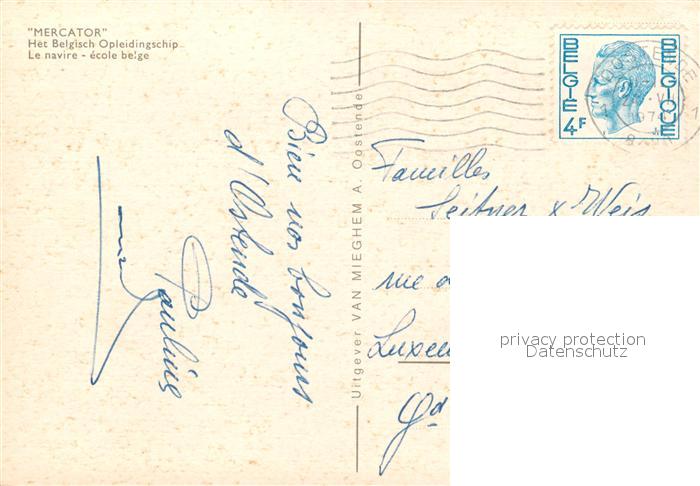 "MERCATOR"
Het Belgisch Opleidingschip
Le navire - école belge
Bien vos bonjours
d'Ostende
Pauline
Uitgever VAN MIEGHEM A. Oostende
BELGIE
BELGIQUE
4F
OOSTENDE
Familles
Seitner x Weis
rue
Luxem
Gd
privacy protection
Datenschutz